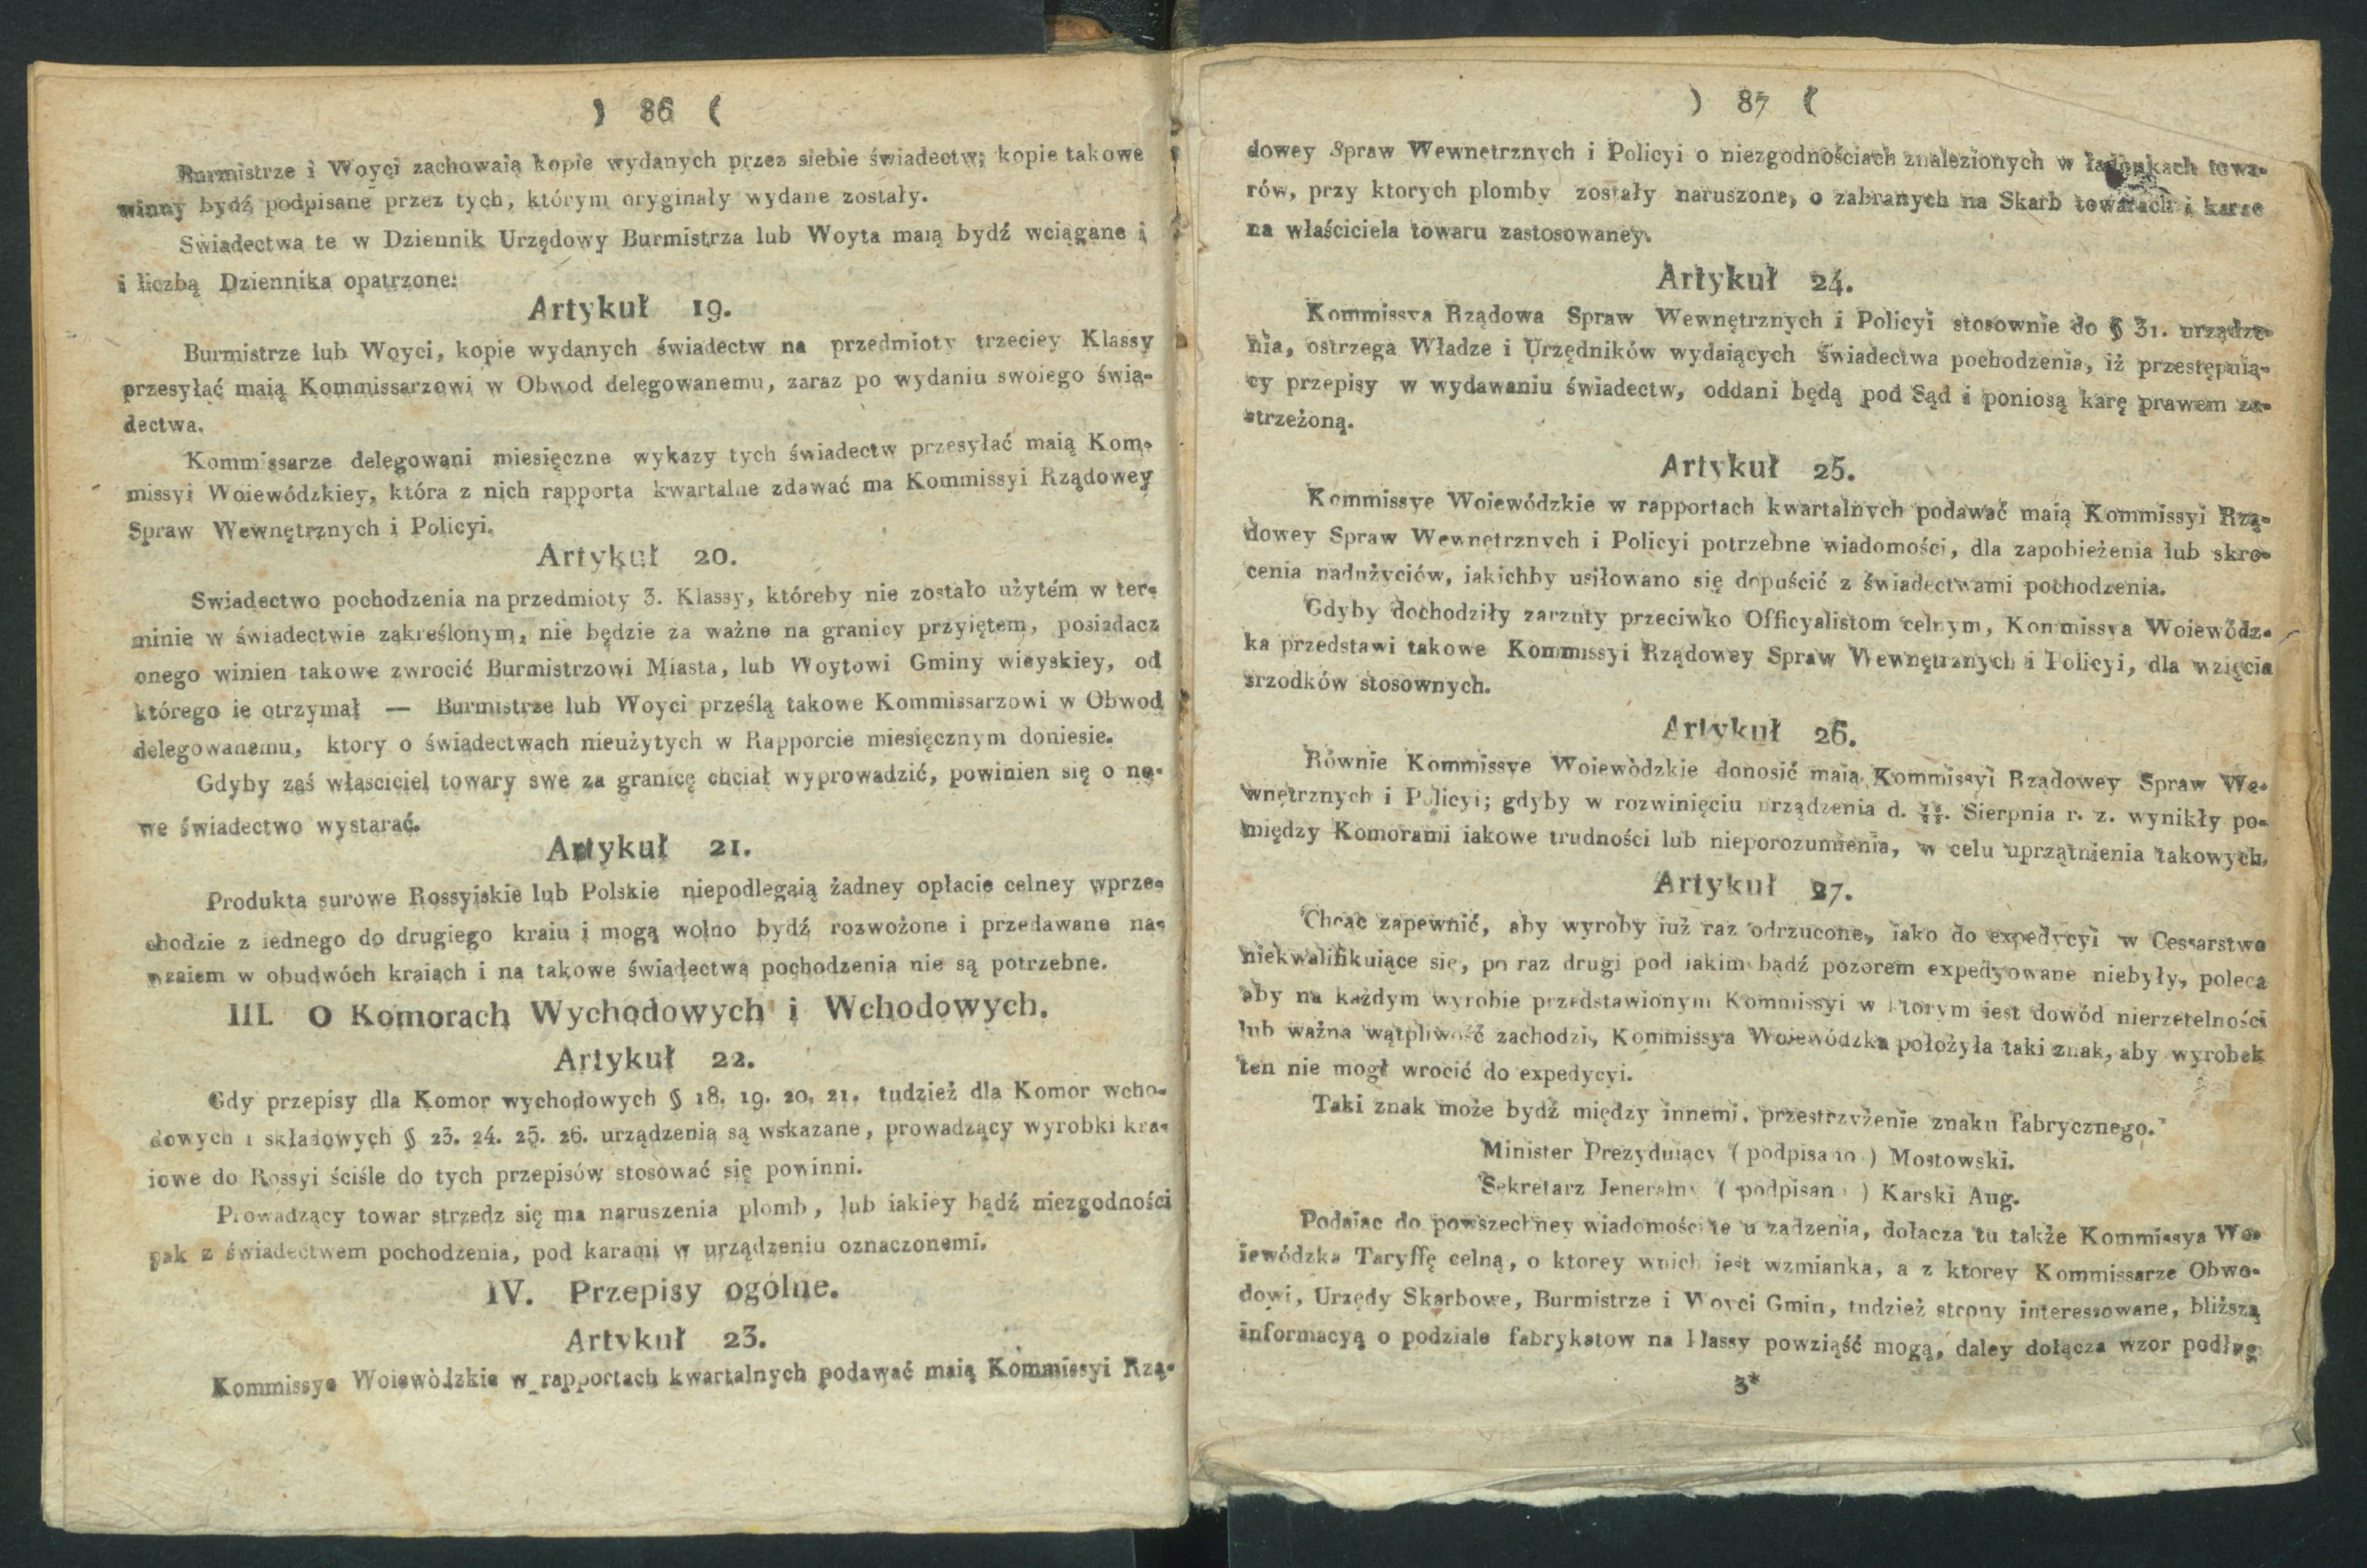 ) 86 (
Burmistrze i Woyci zachowaią kopie wydanych przez siebie świadectw; kopie takowe
winny bydź podpisane przez tych, którym oryginały wydane zostały.
Swiadectwa te w Dziennik Urzędowy Burmistrza lub Woyta maią bydź wciągane i
i liczbą Dziennika opatrzone:
Artykuł 19.
Burmistrze lub Woyci, kopie wydanych świadectw na przedmioty trzeciey Klassy
przesyłać maią Kommissarzowi w Obwod delegowanemu, zaraz po wydaniu swoiego świa-
dectwa.
Kommissarze delegowani miesięczne wykazy tych świadectw przesyłać maią Kom-
missyi Woiewódzkiey, która z nich rapporta kwartalne zdawać ma Kommissyi Rządowey
Spraw Wewnętrznych i Policyi.
Artykuł 20.
Swiadectwo pochodzenia na przedmioty 3. Klassy, któreby nie zostało użytém w ter-
minie w świadectwie zakreślonym, nie będzie za ważne na granicy przyiętem, posiadacz
onego winien takowe zwrocić Burmistrzowi Miasta, lub Woytowi Gminy wieyskiey, od
którego ie otrzymał — Burmistrze lub Woyci prześlą takowe Kommissarzowi w Obwod
delegowanemu, ktory o świadectwach nieużytych w Rapporcie miesięcznym doniesie.
Gdyby zaś własciciel towary swe za granicę chciał wyprowadzić, powinien się o no-
we świadectwo wystarać.
Artykuł 21.
Produkta surowe Rossyiskie lub Polskie niepodlegaią żadney opłacie celney wprze-
chodzie z iednego do drugiego kraiu i mogą wolno bydź rozwożone i przedawane na-
wzaiem w obudwóch kraiach i na takowe świadectwa pochodzenia nie są potrzebne.
III. O Komorach Wychodowych i Wchodowych.
Artykuł 22.
Gdy przepisy dla Komor wychodowych § 18. 19. 20. 21. tudzież dla Komor wcho-
dowych i składowych § 23. 24. 25. 26. urządzenia są wskazane, prowadzący wyrobki kra-
iowe do Rossyi ściśle do tych przepisów stosować się powinni.
Prowadzący towar strzedz się ma naruszenia plomb, lub iakiey bądź niezgodności
pak z świadectwem pochodzenia, pod karami w urządzeniu oznaczonemi.
IV. Przepisy ogólne.
Artykuł 23.
Kommissye Woiewòdzkie w rapportach kwartalnych podawać maią Kommissyi Rzą-
) 87 (
dowey Spraw Wewnętrznych i Policyi o niezgodnościach znalezionych w ładunkach towa-
rów, przy ktorych plomby zostały naruszone, o zabranych na Skarb towarach i karze
na właściciela towaru zastosowaney.
Artykuł 24.
Kommissya Rządowa Spraw Wewnętrznych i Policyi stosownie do § 31. urządze-
nia, ostrzega Władze i Urzędników wydaiących świadectwa pochodzenia, iż przestępuią-
cy przepisy w wydawaniu świadectw, oddani będą pod Sąd i poniosą karę prawem za-
strzeżoną.
Artykuł 25.
Kommissye Woiewódzkie w rapportach kwartalnych podawać maią Kommissyi Rzą-
dowey Spraw Wewnętrznych i Policyi potrzebne wiadomości, dla zapobieżenia lub skro-
cenia nadużyciów, iakichby usiłowano się dopuścić z świadectwami pochodzenia.
Gdyby dochodziły zarzuty przeciwko Officyalistom celnym, Kommissya Woiewódz-
ka przedstawi takowe Kommissyi Rządowey Spraw Wewnętrznych i Policyi, dla wzięcia
srzodków stosownych.
Artykuł 26.
Równie Kommissye Woiewòdzkie donosić maią Kommissyi Rządowey Spraw We-
wnętrznych i Policyi; gdyby w rozwinięciu urządzenia d. Sierpnia r. z. wynikły po-
między Komorami iakowe trudności lub nieporozumienia, w celu uprzątnienia takowych.
Artykuł 27.
Chcąc zapewnić, aby wyroby iuż raz odrzucone, iako do expedycyi w Cessarstwo
niekwalifikuiące się, po raz drugi pod iakim bądź pozorem expedyowane niebyły, poleca
aby na każdym wyrobie przedstawionym Kommissyi w ktorym iest dowód nierzetelności
lub ważna wątpliwość zachodzi, Kommissya Woiewódzka położyła taki znak, aby wyrobek
ten nie mogł wrocić do expedycyi.
Taki znak może bydź między innemi, przestrzyżenie znaku fabrycznego.
Minister Prezyduiący (podpisano) Mostowski.
Sekretarz Jeneralny (podpisano) Karski Aug.
Podaiąc do powszechney wiadomości te urządzenia, dołącza tu także Kommissya Wo-
iewódzka Taryffę celną, o ktorey wnich iest wzmianka, a z ktorey Kommissarze Obwo-
dowi, Urzędy Skarbowe, Burmistrze i Woyci Gmin, tudzież strony interessowane, bliższą
informacyą o podziale fabrykatow na Klassy powziąść mogą, daley dołącza wzor podług
3*